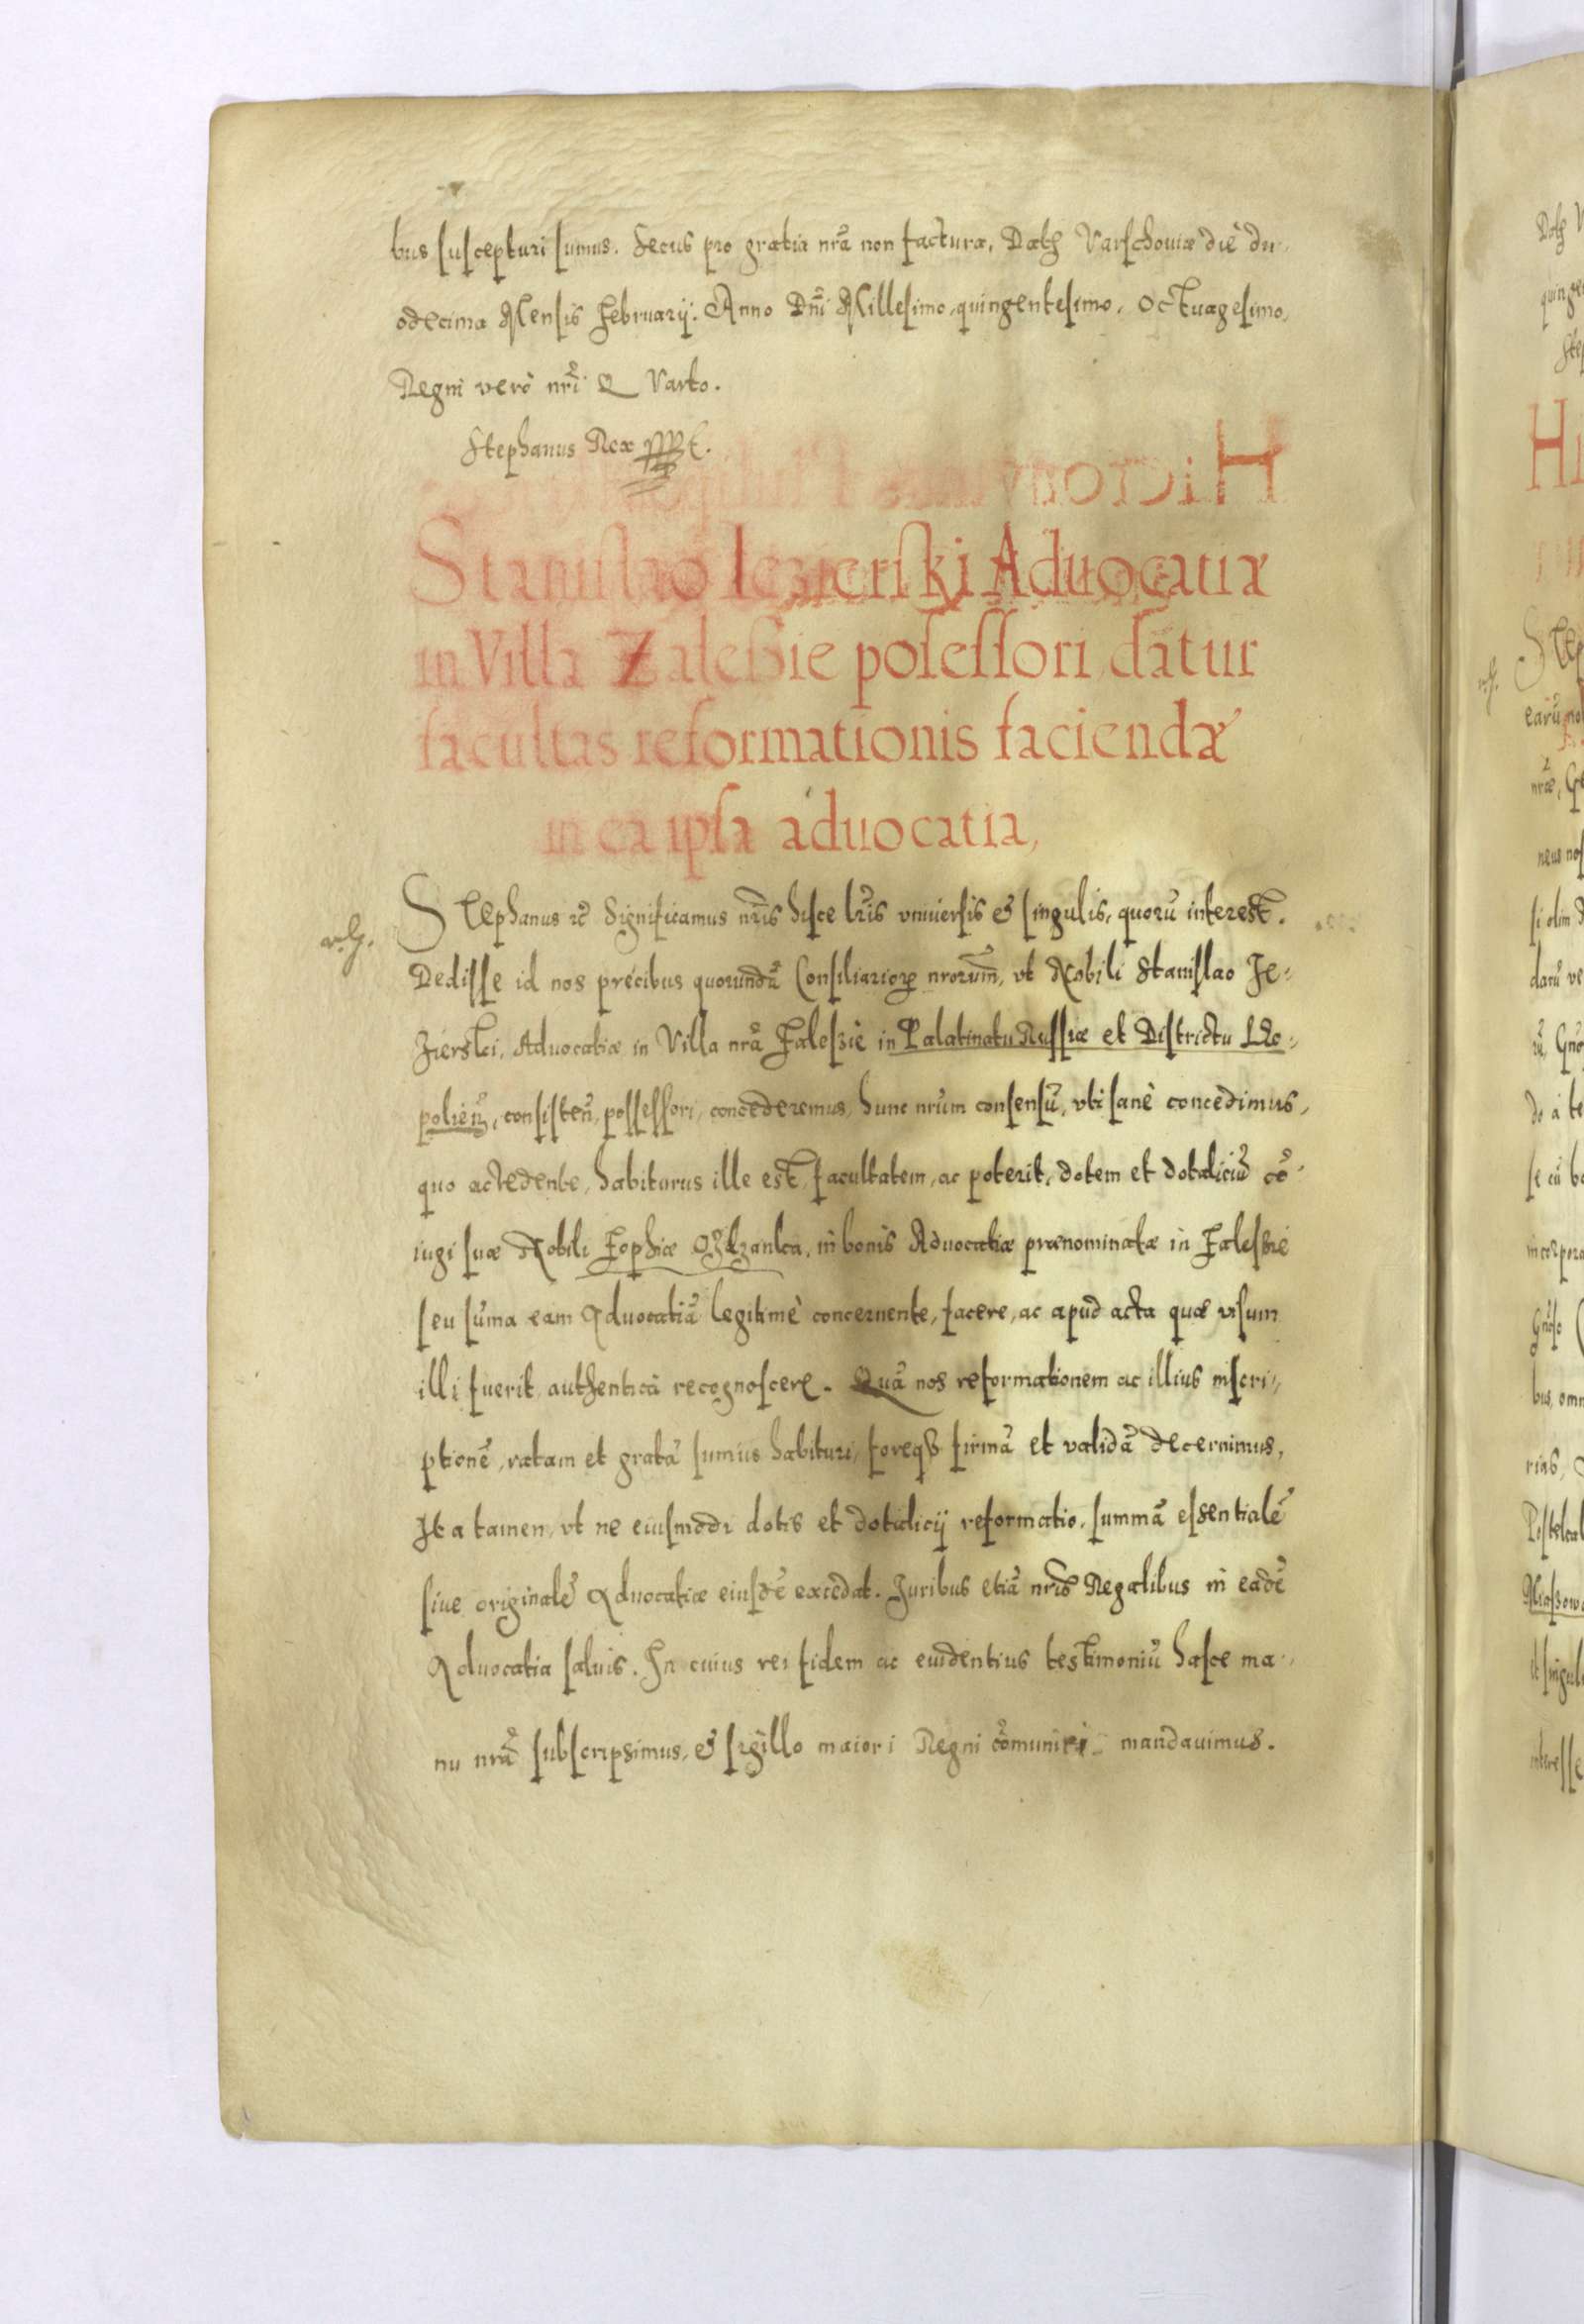 bus suscepturi sumus. Secus pro gratia nrã non facturæ, Datũ Varschouiæ diè du-
odecima Mensis Februarij. Anno Dnĩ Millesimo, quingentesimo, Octuagesimo,
Regni verò nrĩ Q Varto.
Stephanus Rex
Stanislao Iezierski Aduocatiæ
in Villa Zaleßie posessori datur
facultas reformationis faciendæ
in ea ipsa aduocatia,
Stephanus &c Significamus nrĩs hisce lrĩs vniuersis & singulis, quorũ interest.
Dedisse id nos precibus quorundã Consiliariorꝝ nrorum̃, vt Nobili Stanislao Je-
zierski, Aduocatiæ in Villa nrã Zalesziè in Palatinatu Russiæ et Districtu Leo-
polieñ, consisteñ, possessori, concederemus, hunc nrũm consensũ, vti sanè concedimus,
quo accedente, habiturus ille est, facultatem, ac poterit, dotem et dotaliciũ cõ-
iugi suæ Nobili Zophiæ, in bonis Aduocatiæ prænominatæ in Zaleszie
seu sũma eam Aduocatiã legitimè concernente, facere, ac apud acta quæ visum
illi fuerit authentica recognoscere. Quã nos reformationem ac illius inscri-
ptionẽ, ratam et gratã sumus habituri, foreqꝫ firmã et validã decernimus,
Ita tamen, vt ne eiusmodi dotis et dotalicij reformatio, summã essentialẽ
siue originalẽ Aduocatiæ eiusdẽ excedat. Juribus etiã nrĩs Regalibus in eadẽ
Aduocatia saluis. In cuius rei fidem ac euidentius testimoniũ hasce ma-
nu nrã subscripsimus, & sigillo maiori Regni cõmuniri mandauimus.